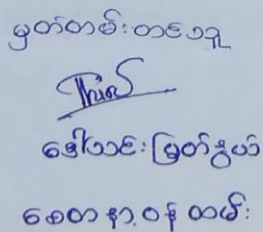 မှတ်တမ်းတင်သူ
ဒေါ်သင်းမြတ်နွယ်
စေတနာ့ဝန်ထမ်း